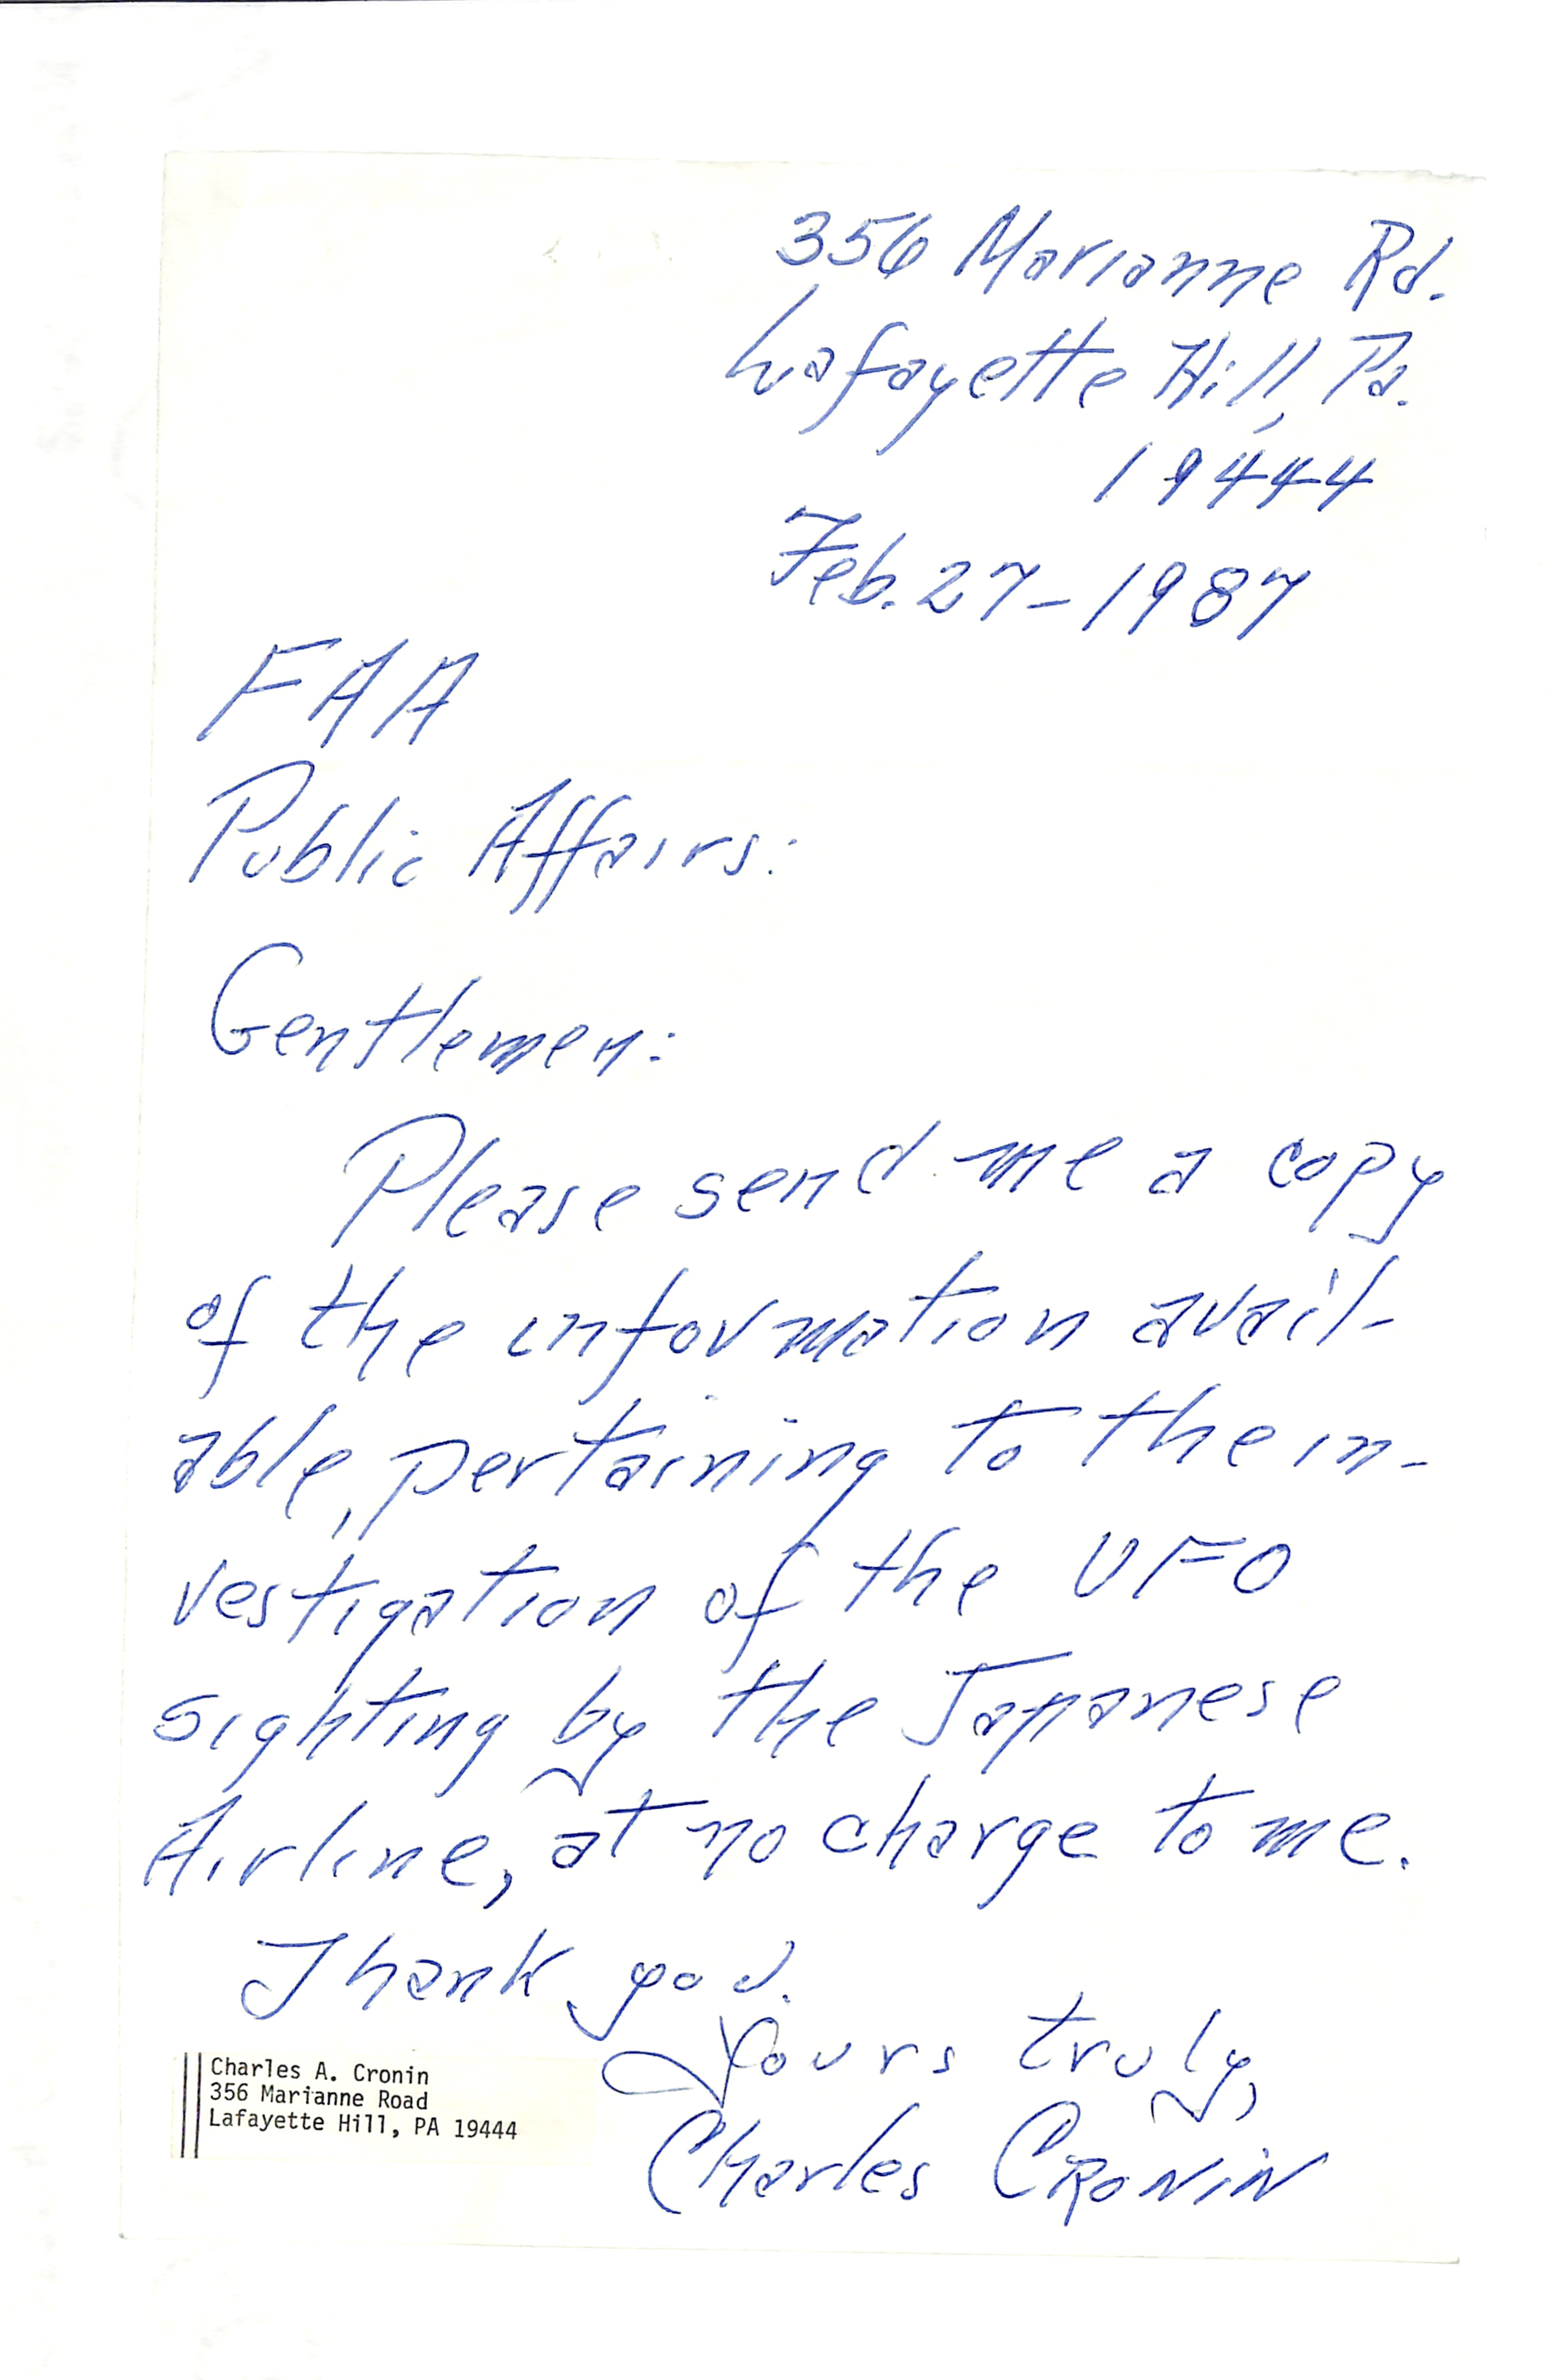 356 Marianne Rd.
Lafayette Hill, Pa.
19444
Feb. 27-1987
FAA
Public Affairs:
Gentlemen:
Please send me a copy
of the information avail-
able, pertaining to the in-
vestigation of the UFO
sighting by the Japanese
Airline, at no charge to me.
Thank you.
Yours truly,
Charles A. Cronin
356 Marianne Road
Lafayette Hill, PA 19444
Charles CRONIN